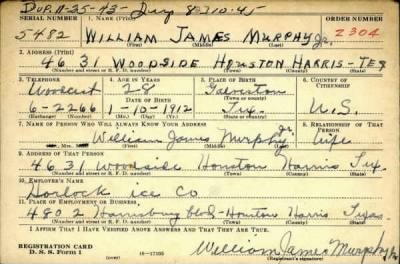 DUP. 11-25-43- Dup 8-10-45
SERIAL NUMBER 1. NAME (Print) ORDER NUMBER
5482 WILLIAM JAMES MURPHY Jr. 2304
(First) (Middle) (Last)
2. ADDRESS (Print)
4631 WOODSIDE HOUSTON HARRIS-TEX
(Number and street or R. F. D. number) (Town) (County) (State)
3. TELEPHONE 4. AGE IN YEARS 5. PLACE OF BIRTH 6. COUNTRY OF CITIZENSHIP
Woodcrest 28 Galveston
DATE OF BIRTH (Town or county)
6-2266 1-10-1912 Tex. U.S.
(Exchange) (Number) (Mo.) (Day) (Yr.) (State or country)
7. NAME OF PERSON WHO WILL ALWAYS KNOW YOUR ADDRESS 8. RELATIONSHIP OF THAT PERSON
Mrs. William James Murphy Jr. Wife
(First) (Middle) (Last)
9. ADDRESS OF THAT PERSON
4631 Woodside Houston Harris Tex.
(Number and street or R. F. D. number) (Town) (County) (State)
10. EMPLOYER'S NAME
Horlock ice Co
11. PLACE OF EMPLOYMENT OR BUSINESS
4802 Harrisburg blvd-Houston Harris Texas
(Number and street or R. F. D. number) (Town) (County) (State)
I AFFIRM THAT I HAVE VERIFIED ABOVE ANSWERS AND THAT THEY ARE TRUE.
REGISTRATION CARD
D. S. S. Form 1 16-17105 William James Murphy Jr
(Registrant's signature)